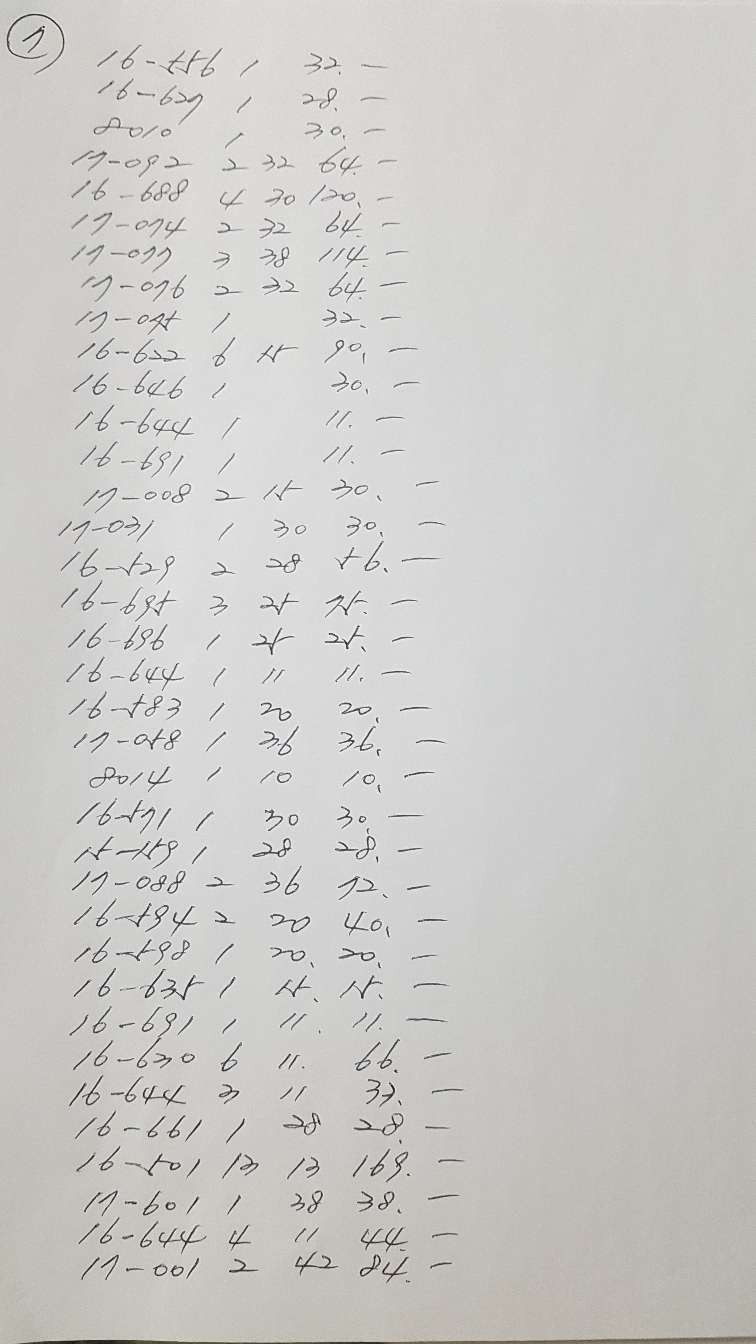 1
16-556 1 32.-
16-627 1 28.-
8010 1 30.-
17-092 2 32 64.-
16-688 4 30 120.-
17-074 2 32 64.-
17-077 3 38 114.-
17-076 2 32 64.-
17-075 1 32.-
16-622 6 15 90.-
16-646 1 30.-
16-644 1 11.-
16-691 1 11.-
17-008 2 15 30.-
17-031 1 30 30.-
16-529 2 28 56.-
16-695 3 25 75.-
16-696 1 25 25.-
16-644 1 11 11.-
16-583 1 20 20.-
17-058 1 36 36.-
8014 1 10 10.-
16-571 1 30 30.-
15-159 1 28 28.-
17-088 2 36 72.-
16-594 2 20 40.-
16-598 1 20. 20.-
16-635 1 15. 15.-
16-691 1 11. 11.-
16-630 6 11. 66.-
16-644 3 11 33.-
16-661 1 28 28.-
16-501 13 13 169.-
17-601 1 38 38.-
16-644 4 11 44.-
17-001 2 42 84.-